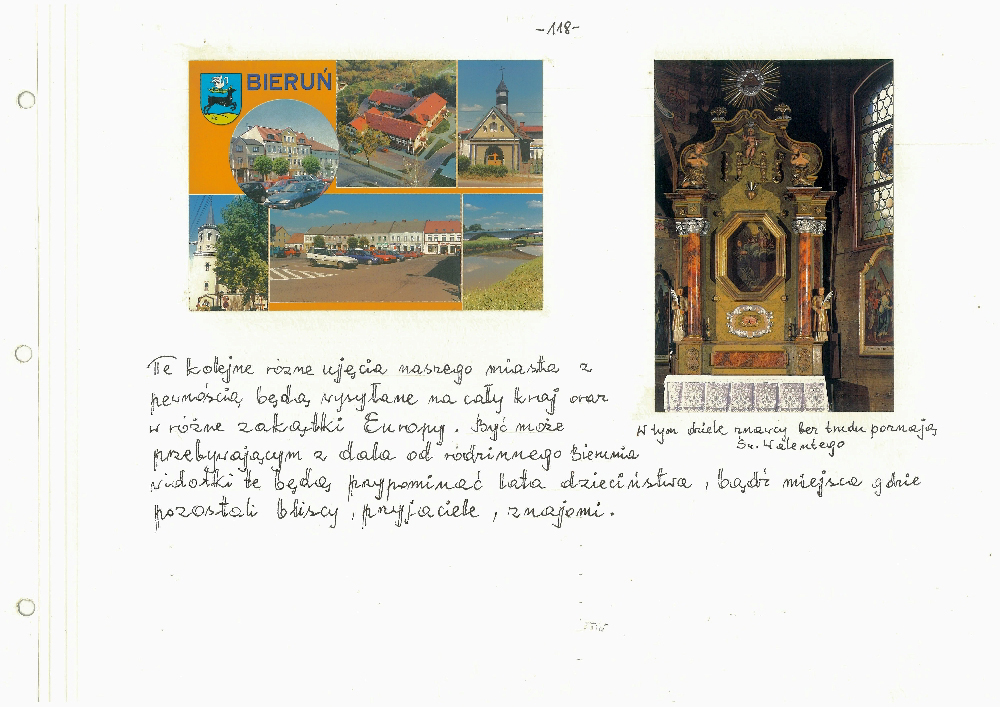 -118-
BIERUŃ
Te kolejne różne ujęcia naszego miasta z
pewnością będą wysyłane na cały kraj oraz
w różne zakątki Europy. Być może
przebywającym z dala od rodzinnego Bierunia
widoki te będą przypominać lata dzieciństwa, bądź miejsca gdzie
pozostali bliscy, przyjaciele, znajomi.
W tym dziele znawcy bez trudu poznają
Św. Walentego